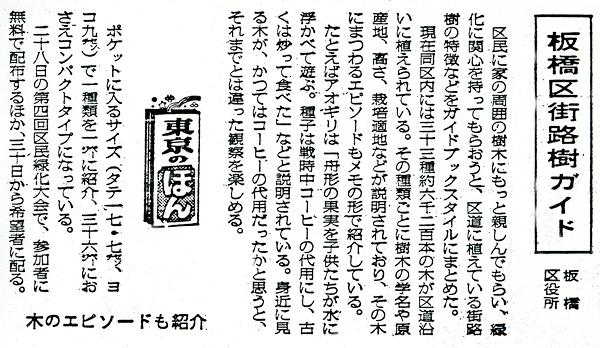 板橋区街路樹ガイド
板橋
区役所
　区民に家の周囲の樹木にもっと親しんでもらい、緑
化に関心を持ってもらおうと、区道に植えている街路
樹の特徴などをガイドブックスタイルにまとめた。
　現在同区内には三十三種約六千二百本の木が区道沿
いに植えられている。その種類ごとに樹木の学名や原
産地、高さ、栽培適地などが説明されており、その木
にまつわるエピソードもメモの形で紹介している。
　たとえばアオギリは「舟形の果実を子供たちが水に
浮かべて遊ぶ。種子は戦時中コーヒーの代用にし、古
くは炒って食べた」などと説明されている。身近に見
る木が、かつてはコーヒーの代用だったかと思うと、
それまでとは違った観察を楽しめる。
東京の
ほん
　ポケットに入るサイズ（タテ一七・七㌢、ヨ
コ九㌢）で一種類を一㌻に紹介、三十六㌻にお
さえコンパクトタイプになっている。
　二十八日の第四回区民緑化大会で、参加者に
無料で配布するほか、三十日から希望者に配る。
木のエピソードも紹介